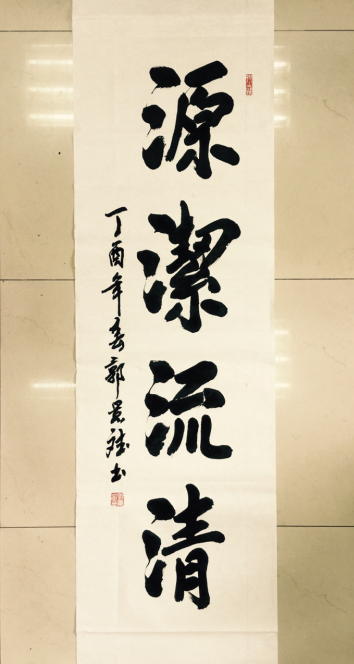 源潔流清
丁酉年春郭景站书